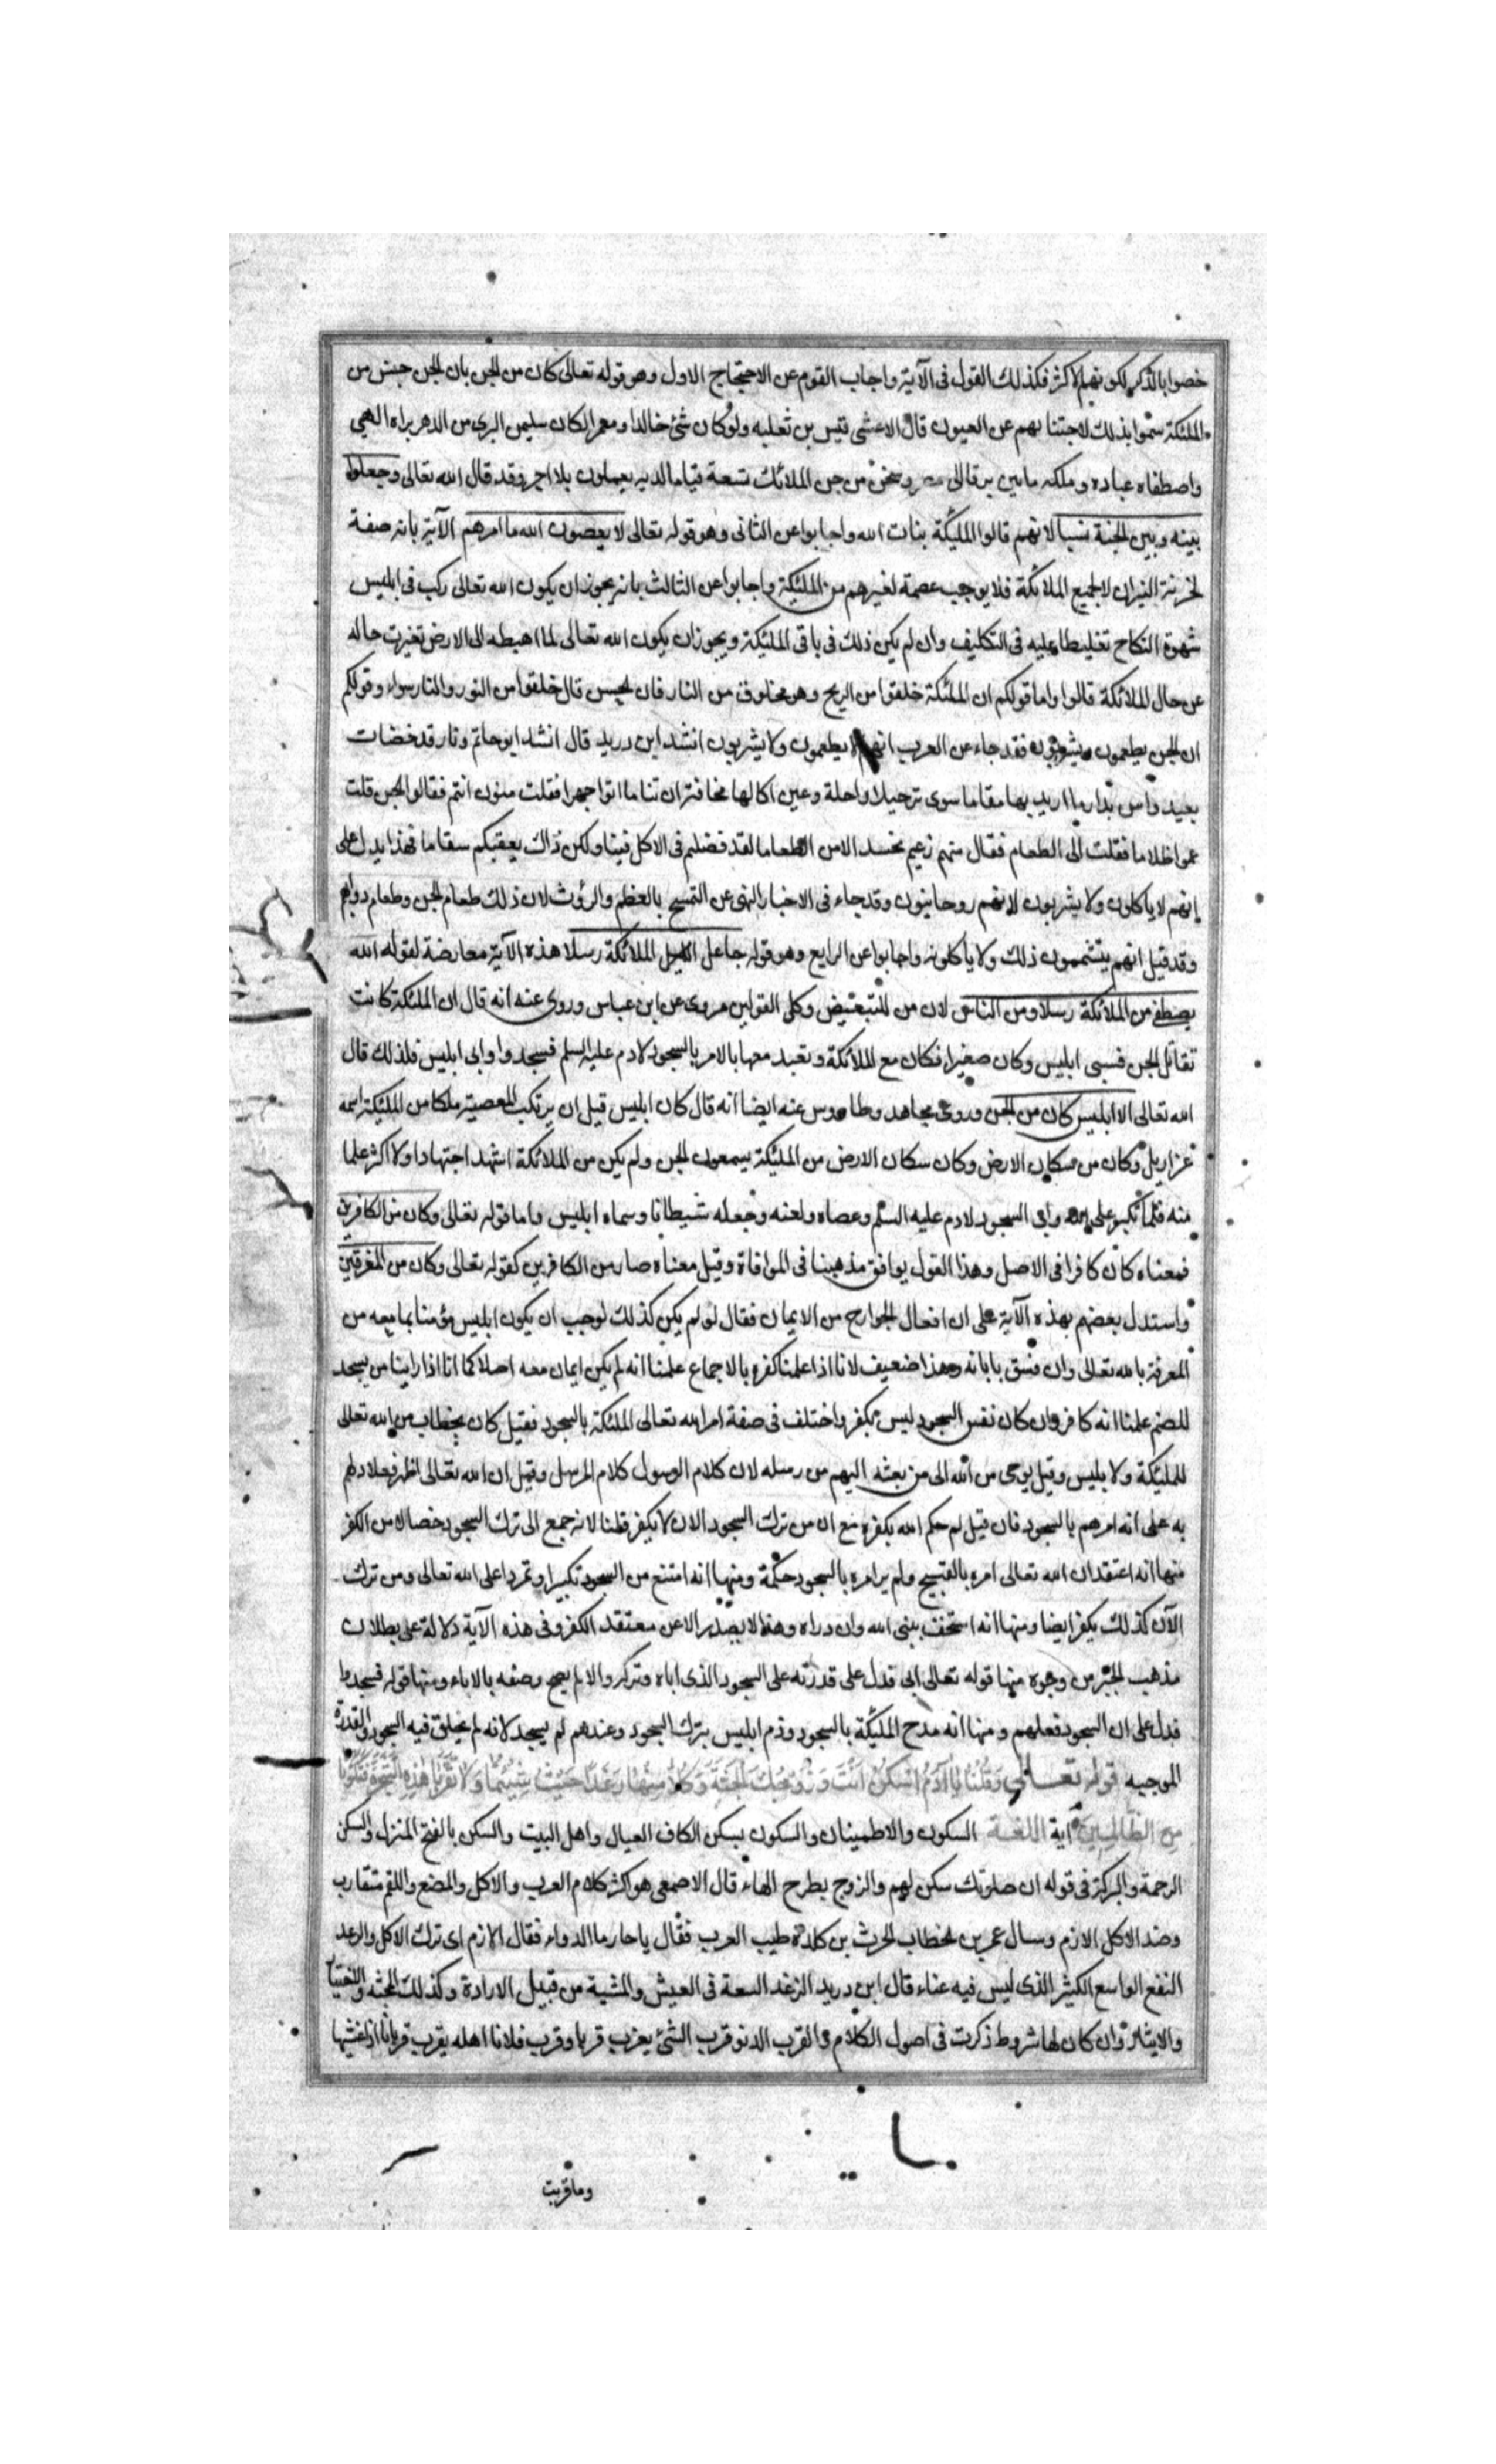 خصوا بالذكر لكونهم الاكثر فكذلك القول فى الآية واجاب القوم عن الاحتجاج الاول وهو قوله تعالى كان من الجن بان الجن جنس من
الملئكة سموا بذلك لاجتنانهم عن العيون قال الاعشى قيس بن ثعلبه ولو كان شئ خالدا ومعمرا لكان سليمن البرى من الدهر براه الهى
واصطفاه عباده وملكه مابين برقا الى مصر وسخر من جن الملائك تسعة قياما لديه يعملون بلا اجر وقد قال الله تعالى وجعلوا
بينه وبين الجنة نسبا لانهم قالوا الملئكة بنات الله واجابوا عن الثانى وهو قوله تعالى لا يعصون الله ما امرهم الآية بانه صفة
لخزنة النيران لا لجميع الملائكة فلا يوجب عصمة لغيرهم من الملئكة واجابوا عن الثالث بانه يجوز ان يكون الله تعالى ركب فى ابليس
شهوة النكاح تغليظا عليه فى التكليف وان لم يكن ذلك فى باقى الملئكة ويجوز ان يكون الله تعالى لما اهبطه الى الارض تغيرت حاله
عن حال الملائكة قالوا واما قولكم ان الملئكة خلقوا من الريح وهو مخلوق من النار فان الحسن قال خلقوا من النور والنار سواء وقولكم
ان الجن يطعمون ويشربون فقد جاء عن العرب انهم لا يطعمون ولا يشربون انشد ابن دريد قال انشد ابو حاتم ونار قد خضات
بعيد وهن بدار ما اريد بها مقاما سوى ترحيل راحلة وعين اكالها مخافة ان تناما اتوا جهرا فقلت منون انتم فقالوا الجن قلت
عموا ظلاما فقلت الى الطعام فقال منهم زعيم نحسد الانس الطعاما لقد فضلتم فى الاكل فينا ولكن ذاك يعقبكم سقاما فهذا يدل على
انهم لا ياكلون ولا يشربون لانهم روحانيون وقد جاء فى الاخبار النهى عن التمسح بالعظم والروث لان ذلك طعام الجن وطعام دوابهم
وقد قيل انهم يتشممون ذلك ولا ياكلونه واجابوا عن الرابع وهو قوله جاعل الملائكة رسلا هذه الآية معارضة لقوله الله
يصطفى من الملائكة رسلا ومن الناس لان من للتبعيض وكلى القولين مروى عن ابن عباس وروى عنه انه قال ان الملئكة كانت
تقاتل الجن فسبى ابليس وكان صغيرا فكان مع الملائكة وتعبد معها بالامر بالسجود لادم عليه السلم فسجدوا وابى ابليس فلذلك قال
الله تعالى الا ابليس كان من الجن وروى مجاهد وطاوس عنه ايضا انه قال كان ابليس قبل ان يرتكب المعصية ملكا من الملئكة اسمه
عزازيل وكان من سكان الارض وكان سكان الارض من الملئكة يسمون الجن ولم يكن من الملائكة اشهد اجتهادا ولا اكثر علما
منه فلما تكبر على الله وابى السجود لادم عليه السلم وعصاه ولعنه وجعله شيطانا وسماه ابليس واما قوله تعالى وكان من الكافرين
فمعناه كان كافرا فى الاصل وهذا القول يوافق مذهبنا فى الموافاة وقيل معناه صار من الكافرين كقوله تعالى وكان من المغرقين
واستدل بعضهم بهذه الآية على ان افعال الجوارح من الايمان فقال لو لم يكن كذلك لوجب ان يكون ابليس مؤمنا بما معه من
المعرفة بالله تعالى وان فسق بابائه وهذا ضعيف لانا اذا علمنا كفره بالاجماع علمنا انه لم يكن ايمان معه اصلا كما انا اذا راينا من يسجد
للصنم علمنا انه كافر وان كان نفس السجود ليس بكفر واختلف فى صفة امر الله تعالى الملئكة بالسجود فقيل كان بخطاب من الله تعالى
للملئكة ولابليس وقيل بوحى من الله الى من بعثه اليهم من رسله لان كلام الرسول كلام المرسل وقيل ان الله تعالى اظهر فعلا دلهم
به على انه امرهم بالسجود فان قيل لم حكم الله بكفره مع ان من ترك السجود الان لا يكفر قلنا لانه جمع الى ترك السجود خصالا من الكفر
منها انه اعتقد ان الله تعالى امره بالقبيح ولم ير امره بالسجود حكمة ومنها انه امتنع من السجود تكبرا وتمردا على الله تعالى ومن ترك
الآن كذلك يكفر ايضا ومنها انه استخف بنبى الله وازدراه وهذا لا يصدر الا عن معتقد الكفر وفى هذه الآية دلالة على بطلان
مذهب الجبر من وجوه منها قوله تعالى ابى فدل على قدرته على السجود الذى اباه وتركه والا لم يصح وصفه بالاباء ومنها قوله فسجدوا
فدل على ان السجود فعلهم ومنها انه مدح الملئكة بالسجود وذم ابليس بترك السجود وعندهم لم يسجد لانه لم يخلق فيه السجود والقدرة
الموجبه قوله تعالى وَقُلْنَا يَا آدَمُ اسْكُنْ اَنْتَ وَزَوْجُكَ الْجَنَّةَ وَكُلَا مِنْهَا رَغَدًا حَيْثُ شِئْتُمَا وَلَا تَقْرَبَا هٰذِهِ الشَّجَرَةَ فَتَكُونَا
مِنَ الظَّالِمِينَ آية اللغة السكون والاطمينان والسكون بسكن الكاف العيال واهل البيت والسكن بالفتح المنزل والسكن
الرحمة والبركة فى قوله ان صلوتك سكن لهم والزوج بطرح الهاء قال الاصمعى هو اكثر كلام العرب والاكل والمضع واللقم متقارب
وضد الاكل الازم وسال عمر بن الخطاب الحرث بن كلدة طبيب العرب فقال يا حار ما الدواء فقال الازم اى ترك الاكل والرغد
النفع الواسع الكثير الذى ليس فيه عناء قال ابن دريد الرغد السعة فى العيش والمشية من قبيل الارادة وكذلك المحبة والاختيار
والايثار وان كان لها شروط ذكرت فى اصول الكلام والقرب الدنو قرب الشئ يقرب قربا وقرب فلانا اهله يقرب قربانا اذا غشيها
وما قربت